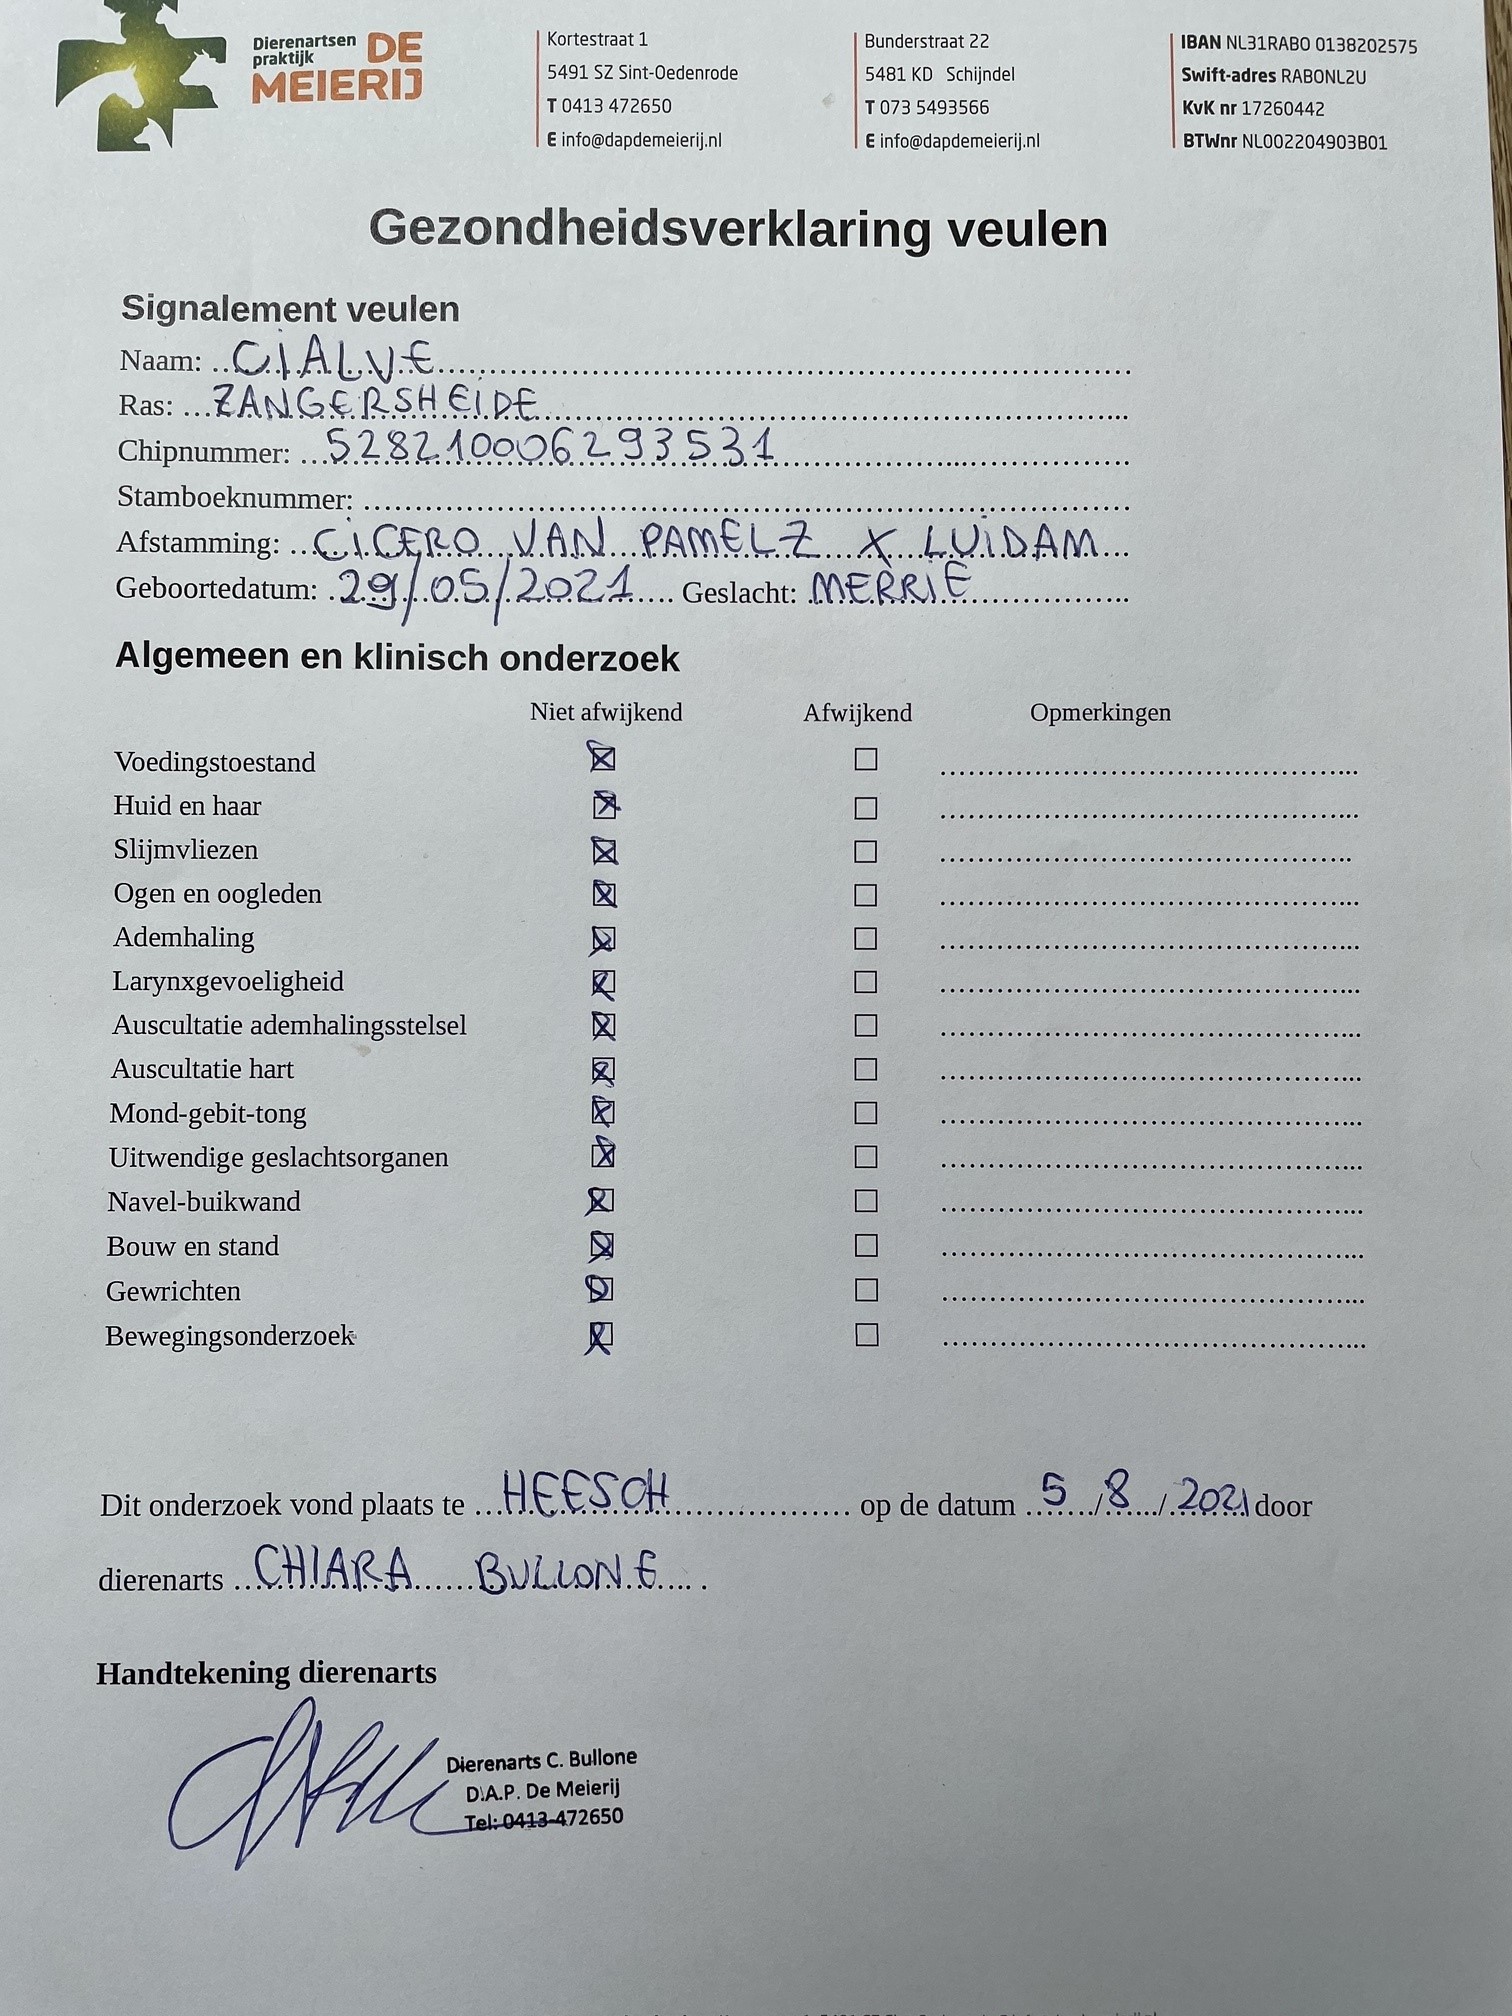 Dierenartsen
praktijk DE
MEIERIJ
Kortestraat 1
5491 SZ Sint-Oedenrode
T 0413 472650
E info@dapdemeierij.nl
Bunderstraat 22
5481 KD Schijndel
T 073 5493566
E info@dapdemeierij.nl
IBAN NL31RABO 0138202575
Swift-adres RABONL2U
KvK nr 17260442
BTWnr NL002204903B01
Gezondheidsverklaring veulen
Signalement veulen
Naam: CIALVE
Ras: ZANGERSHEIDE
Chipnummer: 528210006293531
Stamboeknummer:
Afstamming: CICERO VAN PAMELZ X LUIDAM
Geboortedatum: 29/05/2021 Geslacht: MERRIE
Algemeen en klinisch onderzoek
Niet afwijkend Afwijkend Opmerkingen
Voedingstoestand ☒ ☐
Huid en haar ☒ ☐
Slijmvliezen ☒ ☐
Ogen en oogleden ☒ ☐
Ademhaling ☒ ☐
Larynxgevoeligheid ☒ ☐
Auscultatie ademhalingsstelsel ☒ ☐
Auscultatie hart ☒ ☐
Mond-gebit-tong ☒ ☐
Uitwendige geslachtsorganen ☒ ☐
Navel-buikwand ☒ ☐
Bouw en stand ☒ ☐
Gewrichten ☒ ☐
Bewegingsonderzoek ☒ ☐
Dit onderzoek vond plaats te HEESCH op de datum 5/8/2021 door
dierenarts CHIARA BULLONE
Handtekening dierenarts
Dierenarts C. Bullone
D.A.P. De Meierij
Tel: 0413-472650